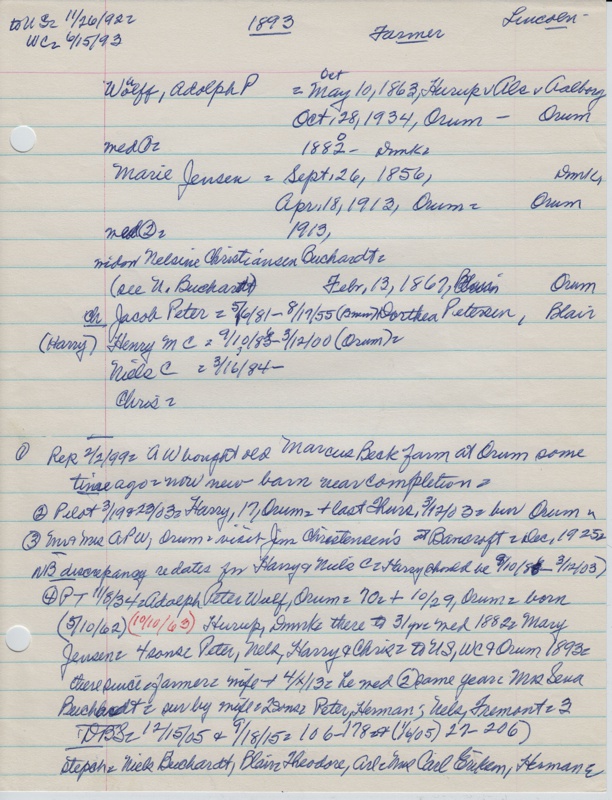 to US= 11/26/92=
WC= 6/15/93
1893
Farmer
Lincoln-
Wulff, Adolph P = May 10, 1863, Hurup v Als v Aalborg
Oct
Oct, 28, 1934, Orum - Orum
med ①= 1882- Dmk=
Marie Jensen = Sept, 26, 1856, Dmk,
Apr, 18, 1913, Orum= Orum
med ②= 1913,
widow Nelsine Christiansen Buchardt=
(see N. Buchardt) Febr, 13, 1867, Blair Orum
ch Jacob Peter = 5/6/81 - 8/17/55 (Dorthea Petersen, Blair
(Harry) Henry M C = 9/10/85 - 3/12/00 (Orum)=
Niels C = 3/16/84-
Chris=
① Rep 2/2/99= A W bought old Marcus Beck farm at Orum some
time ago= now new barn near completion=
② Pilot 3/19 & 23/03= Harry, 17, Orum= + last Thurs, 3/12/03= bur Orum=
③ Mr & Mrs APW, Orum= visit Jim Christensen's at Bancroft= Dec, 1925=
NB discrepancy re dates for Harry & Niels C= Harry should be 9/10/86 - 3/12/03)
④ PT 11/8/34= Adolph Peter Wulf, Orum= 70= + 10/29, Orum= born
(5/10/62) (10/10/63) Hurup, Dmrk= there to 31 yr= med 1882= Mary
Jensen= 4 sons= Peter, Nels, Harry & Chris= to US, WC & Orum 1893=
there since= farmer= wife + 4/ /13= he med ② same year= Mrs Sena
Buchardt= sur by wife= sons= Peter, Herman; Nels, Fremont= 3
DBS= 12/15/05 & 9/18/15= 106-178 (1/6/05) 27-206)
stepch= Niels Buchardt, Blair= Theodore, Mrs Carl Eriksen, Herman &